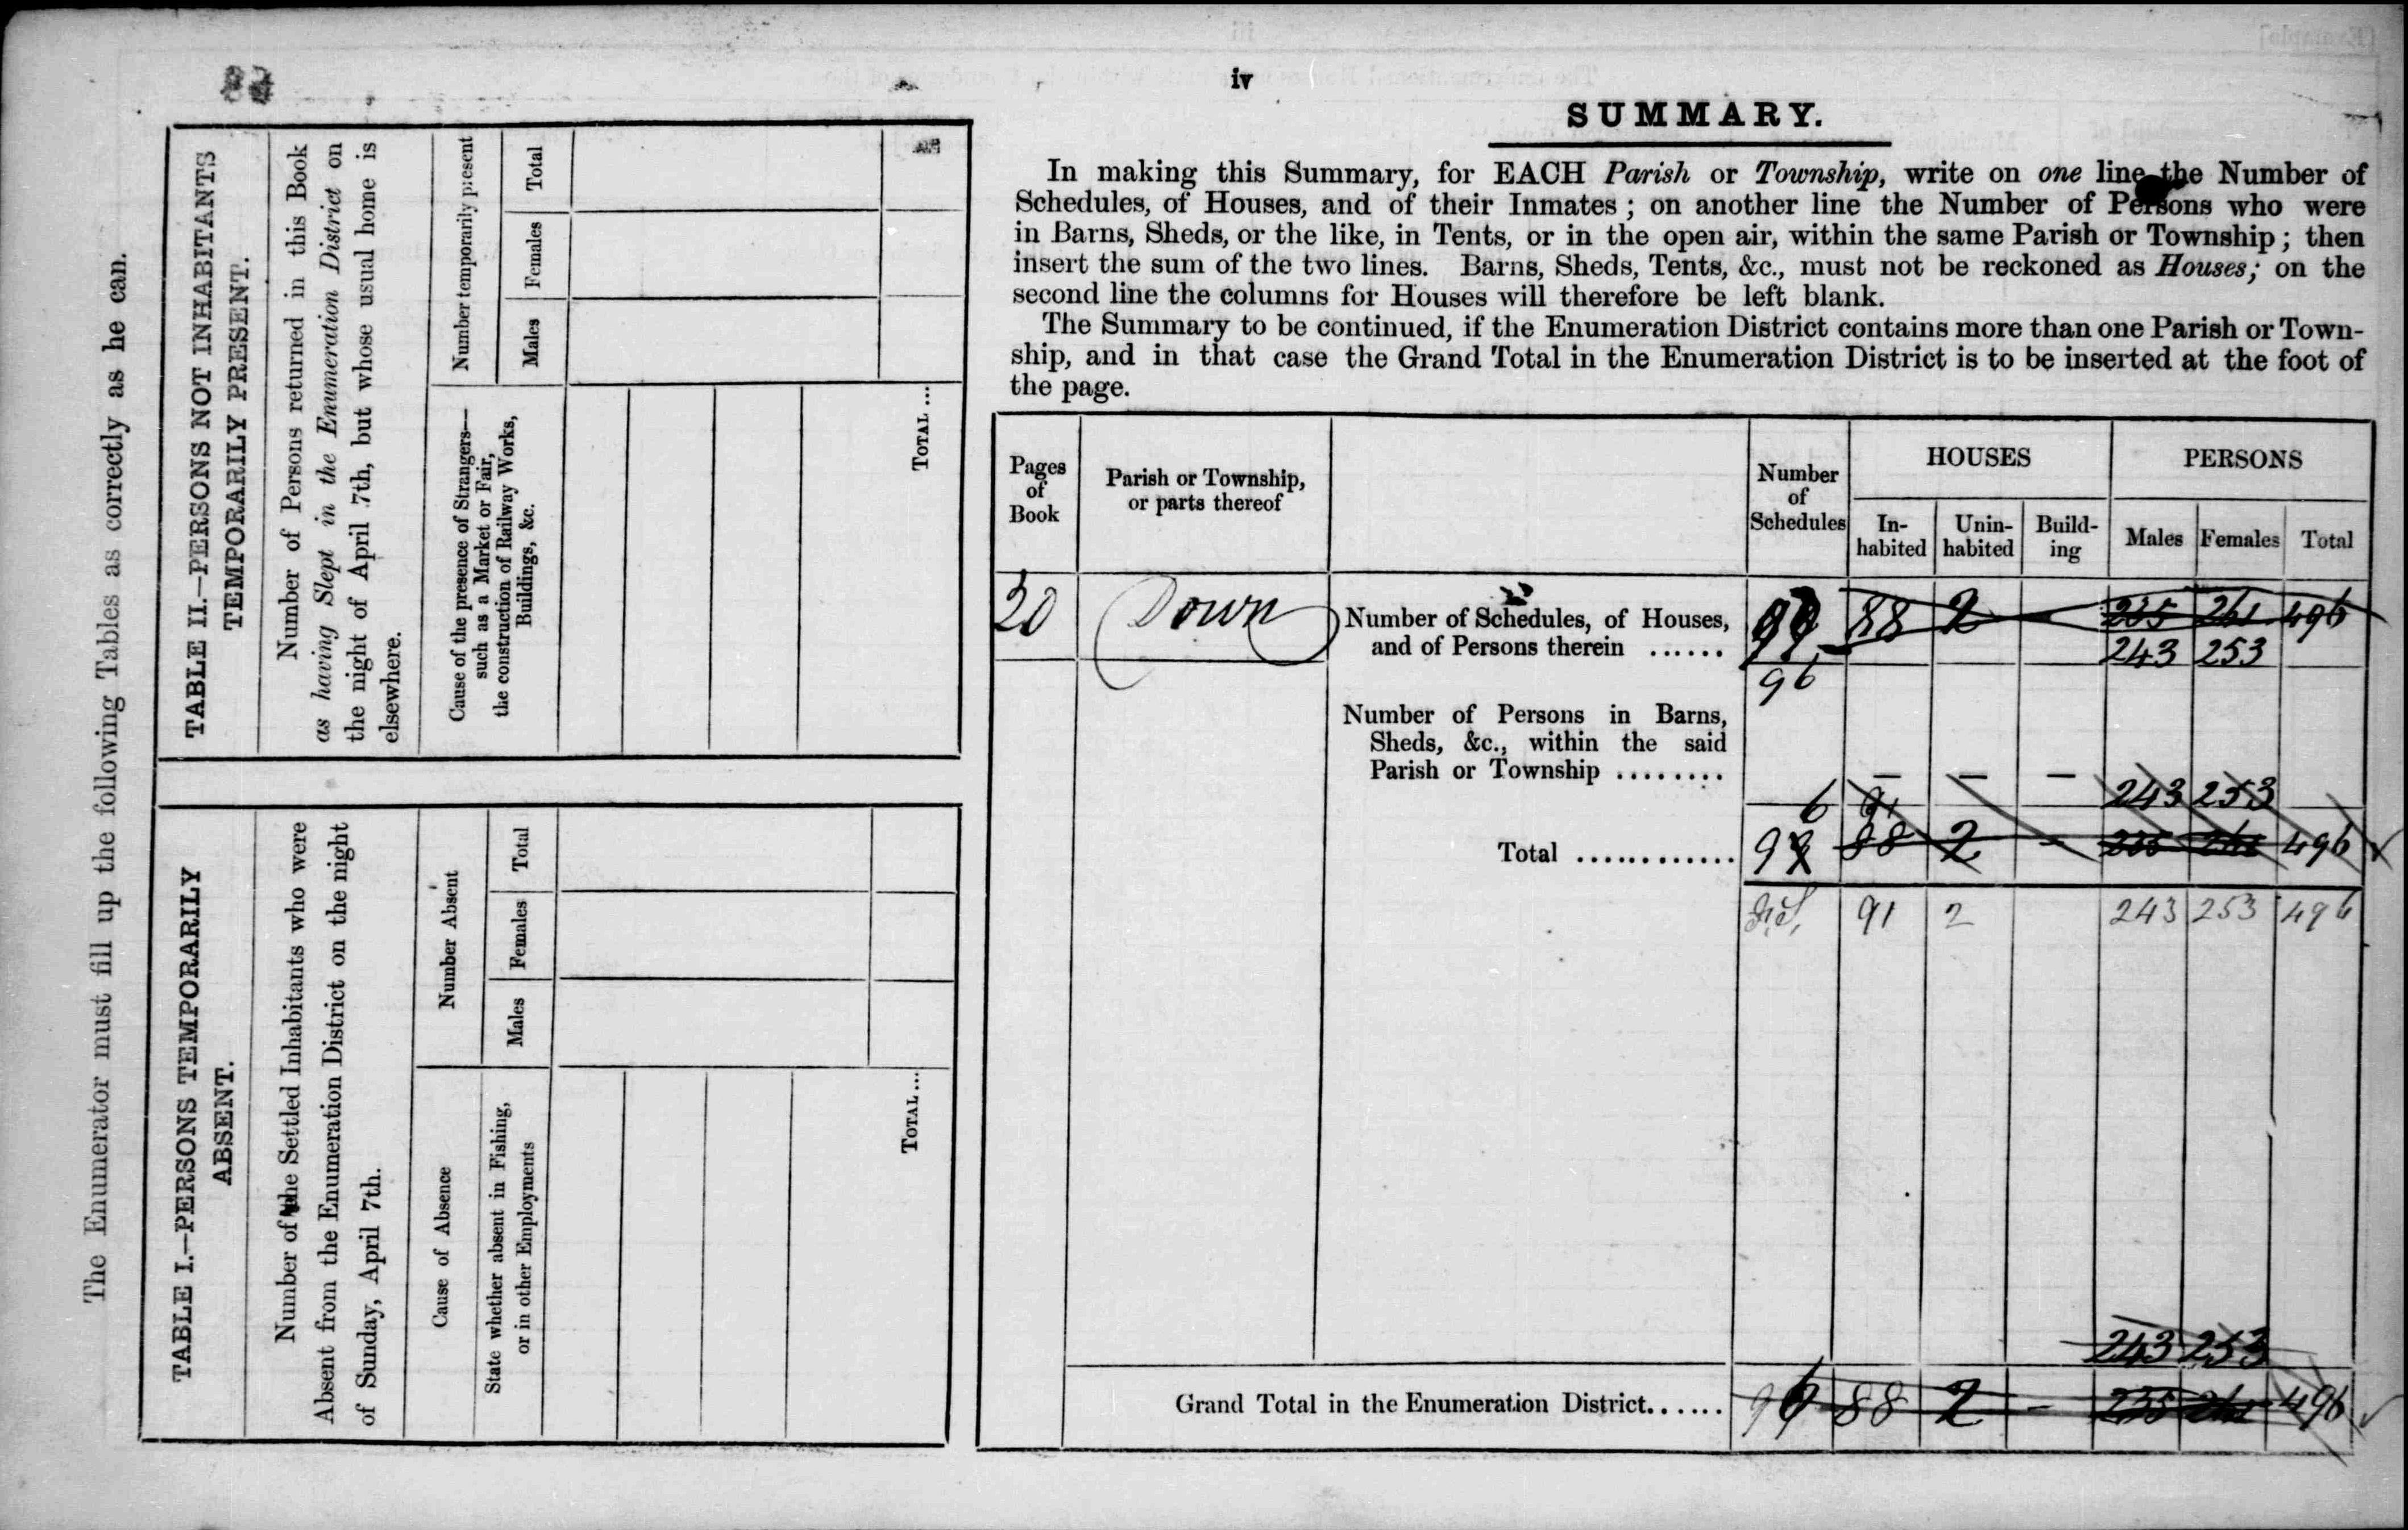 iv
The Enumerator must fill up the following Tables as correctly as he can.
TABLE I.—PERSONS TEMPORARILY
ABSENT.
Number of the Settled Inhabitants who were
Absent from the Enumeration District on the night
of Sunday, April 7th.
Cause of Absence
Number Absent
State whether absent in Fishing,
or in other Employments
Males
Females
Total
TOTAL ...
TABLE II.—PERSONS NOT INHABITANTS
TEMPORARILY PRESENT.
Number of Persons returned in this Book
as having Slept in the Enumeration District on
the night of April 7th, but whose usual home is
elsewhere.
Cause of the presence of Strangers—
such as a Market or Fair,
the construction of Railway Works,
Buildings, &c.
Number temporarily present
Males
Females
Total
TOTAL ...
SUMMARY.
In making this Summary, for EACH Parish or Township, write on one line the Number of
Schedules, of Houses, and of their Inmates; on another line the Number of Persons who were
in Barns, Sheds, or the like, in Tents, or in the open air, within the same Parish or Township; then
insert the sum of the two lines. Barns, Sheds, Tents, &c., must not be reckoned as Houses; on the
second line the columns for Houses will therefore be left blank.
The Summary to be continued, if the Enumeration District contains more than one Parish or Town-
ship, and in that case the Grand Total in the Enumeration District is to be inserted at the foot of
the page.
Pages
of
Book
Parish or Township,
or parts thereof
Number
of
Schedules
HOUSES
In-
habited
Unin-
habited
Build-
ing
PERSONS
Males
Females
Total
20 Down
Number of Schedules, of Houses,
and of Persons therein ......
88 2 — 235 261 496
243 253
96
Number of Persons in Barns,
Sheds, &c., within the said
Parish or Township ........
— — —
6 91 243 253
Total ............
88 2 - 235 261 496
91 2 243 253 496
243 253
Grand Total in the Enumeration District......
88 2 - 235 261 496